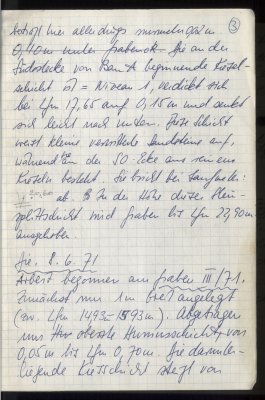 ③
hier allerdings nur
0,40 m unter Grabenok. Die an der
Südostecke von Bau A beginnende Kiesel-
schicht ist = Niveau 1, verdickt sich
bei Lfm 17,65 auf 0,15 m und senkt
sich leicht nach unten. Diese Schicht
weist kleine verwitterte Sandsteine auf,
während in der SO-Ecke aus reinen
Kieseln besteht. Sie bricht bei Laufm:
ab. In der Höhe dieser Klein-
splittschicht wird Graben bis Lfm 22,90 m
ausgehoben.
Die. 2. 6. 71
Arbeit begonnen am Graben III/71.
Zunächst nur 1 m breit angelegt
(zw. Lfm 1493 - 1593 m). Abgetragen
nur oberste Humusschicht von
0,05 m bis Lfm 0,70 m. Die darunter-
liegende Kiesschicht steigt von